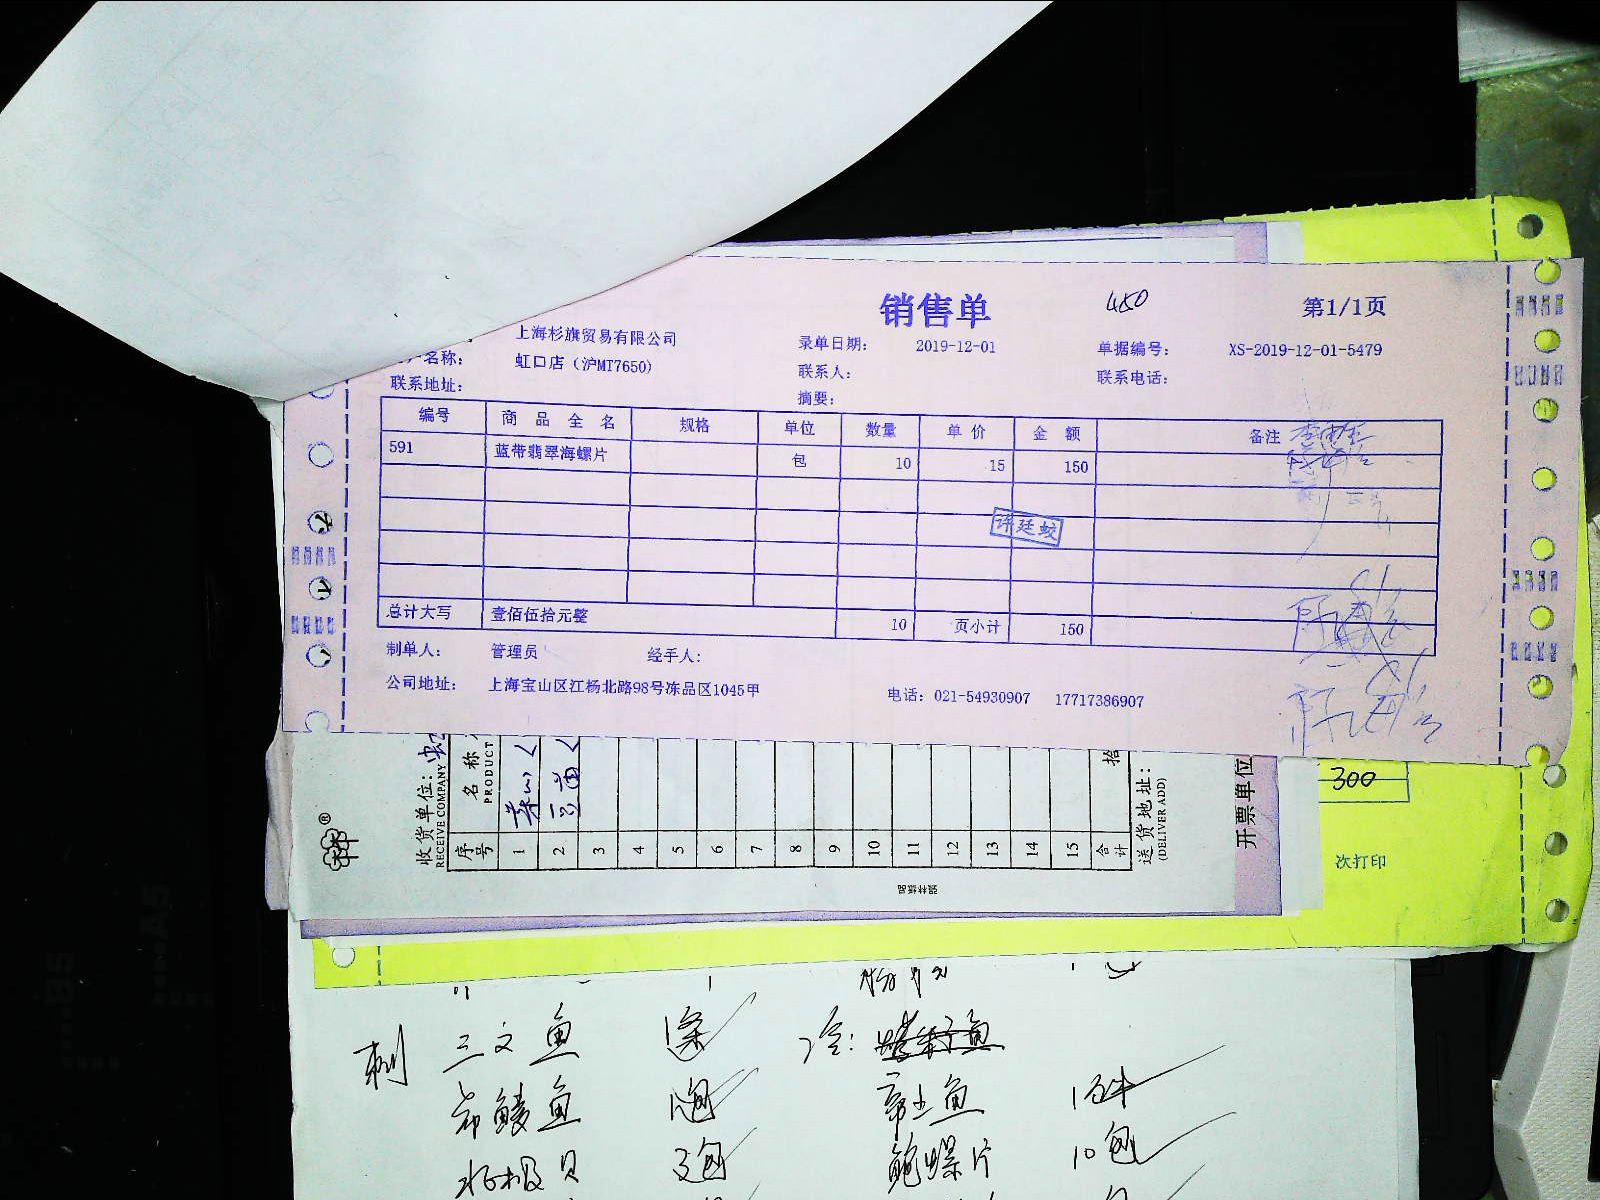 销售单
450
第1/1页
上海杉旗贸易有限公司
录单日期： 2019-12-01
单据编号： XS-2019-12-01-5479
户名称： 虹口店（沪MT7650）
联系人：
联系电话：
联系地址：
摘要：
编号 商品全名 规格 单位 数量 单价 金额 备注
591 蓝带翡翠海螺片 包 10 15 150
许廷蛟
总计大写 壹佰伍拾元整 10 页小计 150
制单人： 管理员 经手人：
公司地址： 上海宝山区江杨北路98号冻品区1045甲
电话：021-54930907 17717386907
收货单位：虹
RECEIVE COMPANY
序号 名称
PRODUCT
1
2
3
4
5
6
7
8
9
10
11
12
13
14
15
合计
拾
送货地址：
(DELIVER ADD)
开票单位
300
次打印
刺 三文鱼 1条
希鲮鱼 1包
北极贝 3包
冷：
章土鱼
鲍螺片 10包